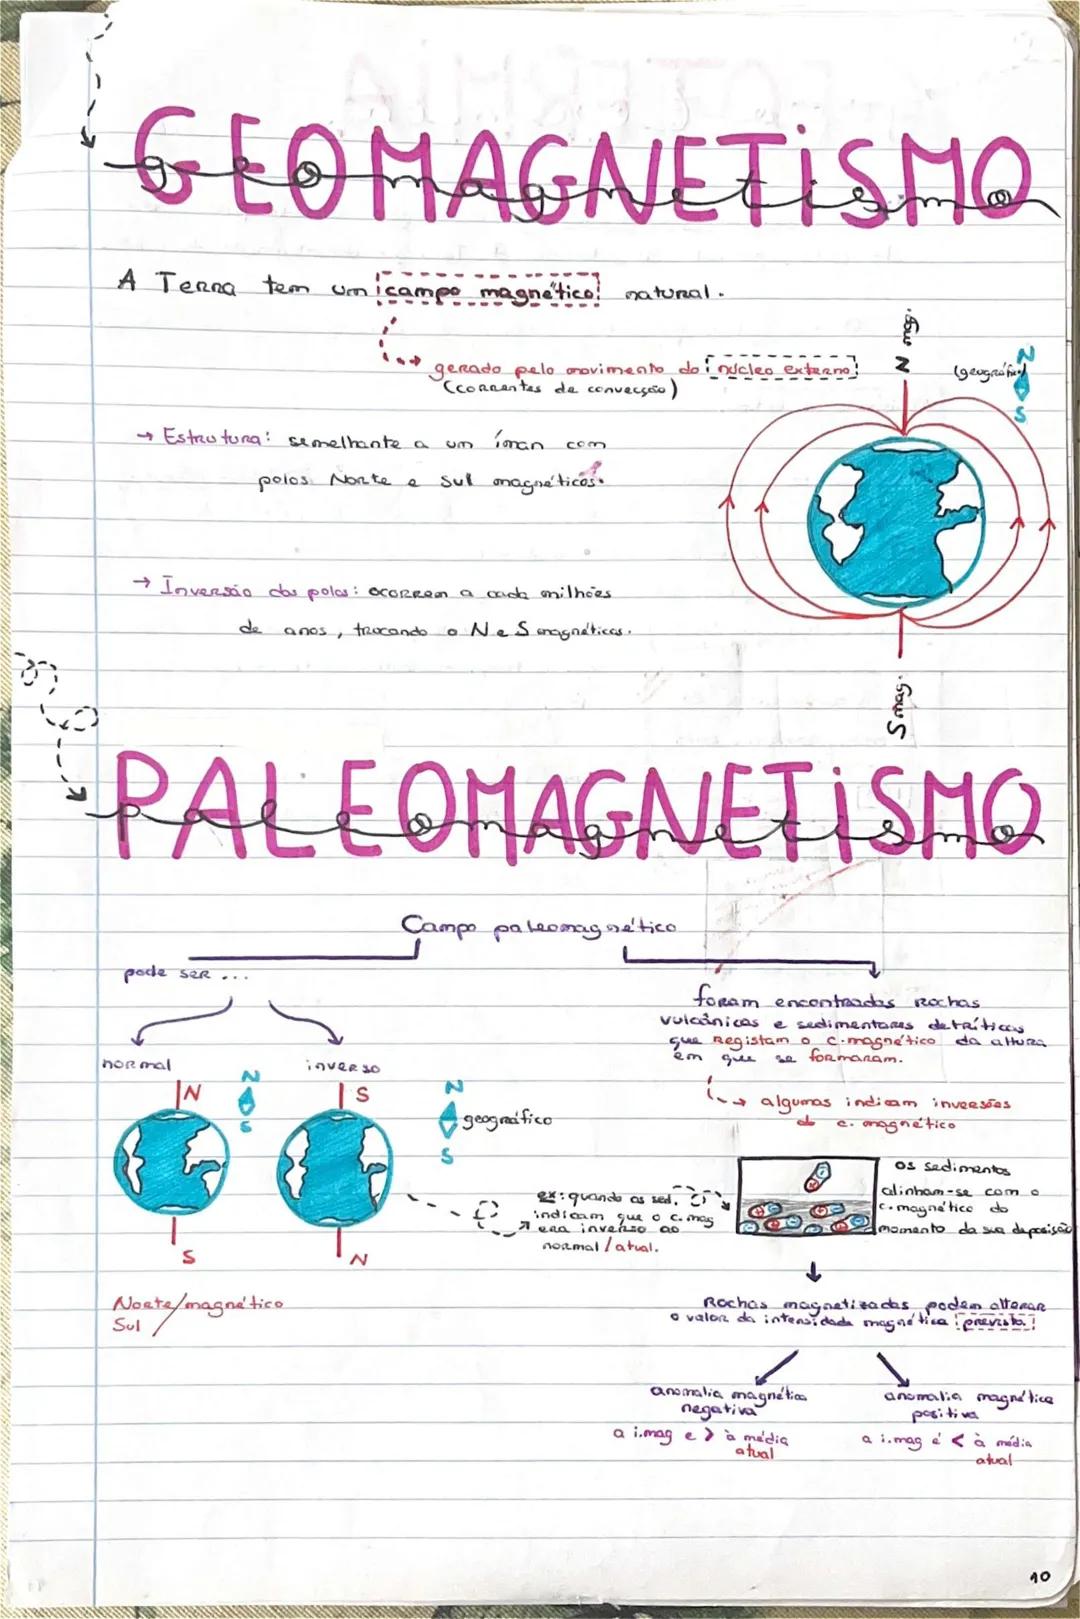 GEOMAGNETISMO
geomagnetismo
A Terra tem um campo magnético natural.
gerado pelo movimento do núcleo externo
(correntes de convecção)
N mag.
(geográfico)
N
S
→ Estrutura: semelhante a um íman com
polos Norte e Sul magnéticos.
→ Inversão dos polos: ocorrem a cada milhões
de anos, trocando o N e S magnéticos.
S mag.
PALEOMAGNETISMO
paleomagnetismo
Campo paleomagnético
pode ser ...
normal
inverso
N
S
N
S
S
N
N
S
geográfico
Norte/magnético
Sul
foram encontradas rochas
vulcânicas e sedimentares detríticas
que registam o c.magnético da altura
em que se formaram.
algumas indicam inversões
do c. magnético
ex: quando os sed.
indicam que o c.mag
era inverso ao
normal/atual.
os sedimentos
alinham-se com o
c.magnético do
momento da sua deposição
Rochas magnetizadas podem alterar
o valor da intensidade magnética prevista.
anomalia magnética
negativa
a i.mag e > à média
atual
anomalia magnética
positiva
a i.mag é < à média
atual
10